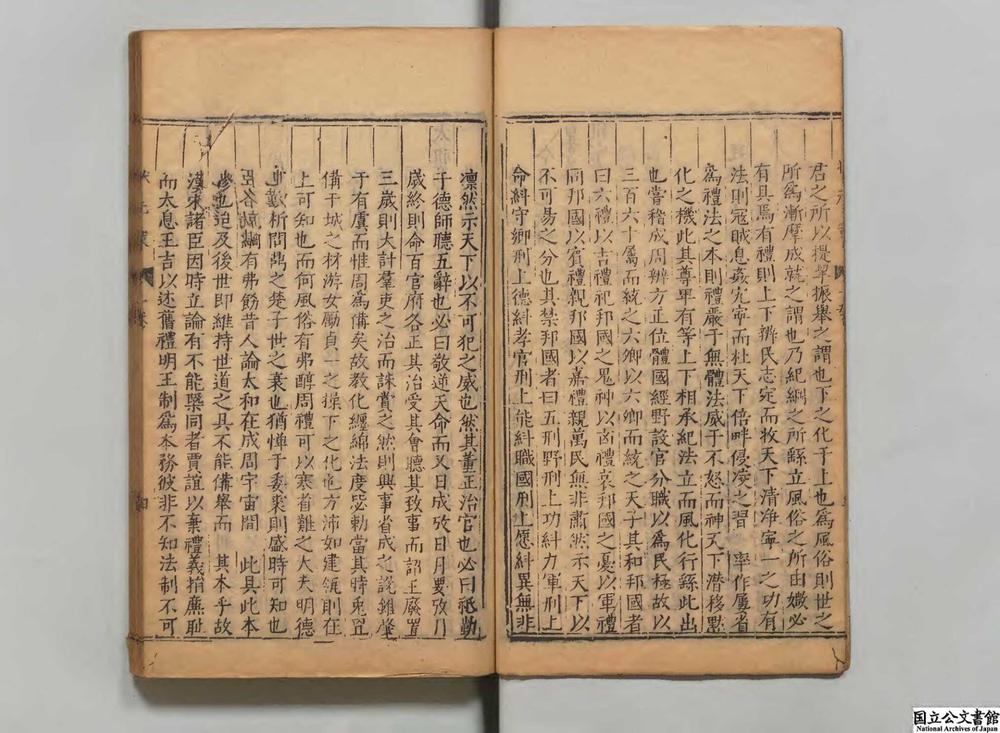 君之所以提挈振舉之謂也下之化于上也爲風俗則世之
所爲漸摩成就之謂也乃紀綱之所繇立風俗之所由媺必
有具焉有禮則上下辨民志定而牧天下清净寧一之功有
法則寇賊息姦宄寧而杜天下倍畔侵凌之習 率作屢省
爲禮法之本則禮嚴于無體法威于不怒而神天下潛移默
化之機此其尊畢有等上下相承紀法立而風化行繇此出
也嘗稽成周辨方正位體國經野設官分職以爲民極故以
三百六十屬而統之六卿以六卿而統之天子其和邦國者
曰六禮以吉禮祀邦國之鬼神以凶禮哀邦國之憂以軍禮
同邦國以賓禮親邦國以嘉禮親萬民無非肅然示天下以
不可易之分也其禁邦國者曰五刑野刑上功糾力軍刑上
命糾守鄉刑上德糾孝官刑上能糾職國刑上愿糾異無非
凛然示天下以不可犯之威也然其董正治官也必曰祗勤
于德師聽五辭也必曰敬逆天命而又日成攷日月要攷月
歲終則命百官府各正其治受其會聽其致事而詔王廢置
三歲則大計羣吏之治而誅賞之然則興事省成之說雖肇
于有虞而惟周爲備矣故教化纏綿法度毖勅當其時兎罝
備干城之材游女勵貞一之操下之化也方沛如建瓴則在
上可知也而何風俗有弗醇周禮可以寒省難之大夫明德
可歎析問鼎之楚子世之衰也猶憚于委裘則盛時可知也
紀綱有弗飭昔人論太和在成周宇宙間 此具此本
也迨及後世即維持世道之具不能備舉而 其本乎故
漢宋諸臣因時立論有不能槩同者賈誼以棄禮義捐廉恥
而太息王吉以述舊禮明王制爲本務彼非不知法制不可
国立公文書館
National Archives of Japan